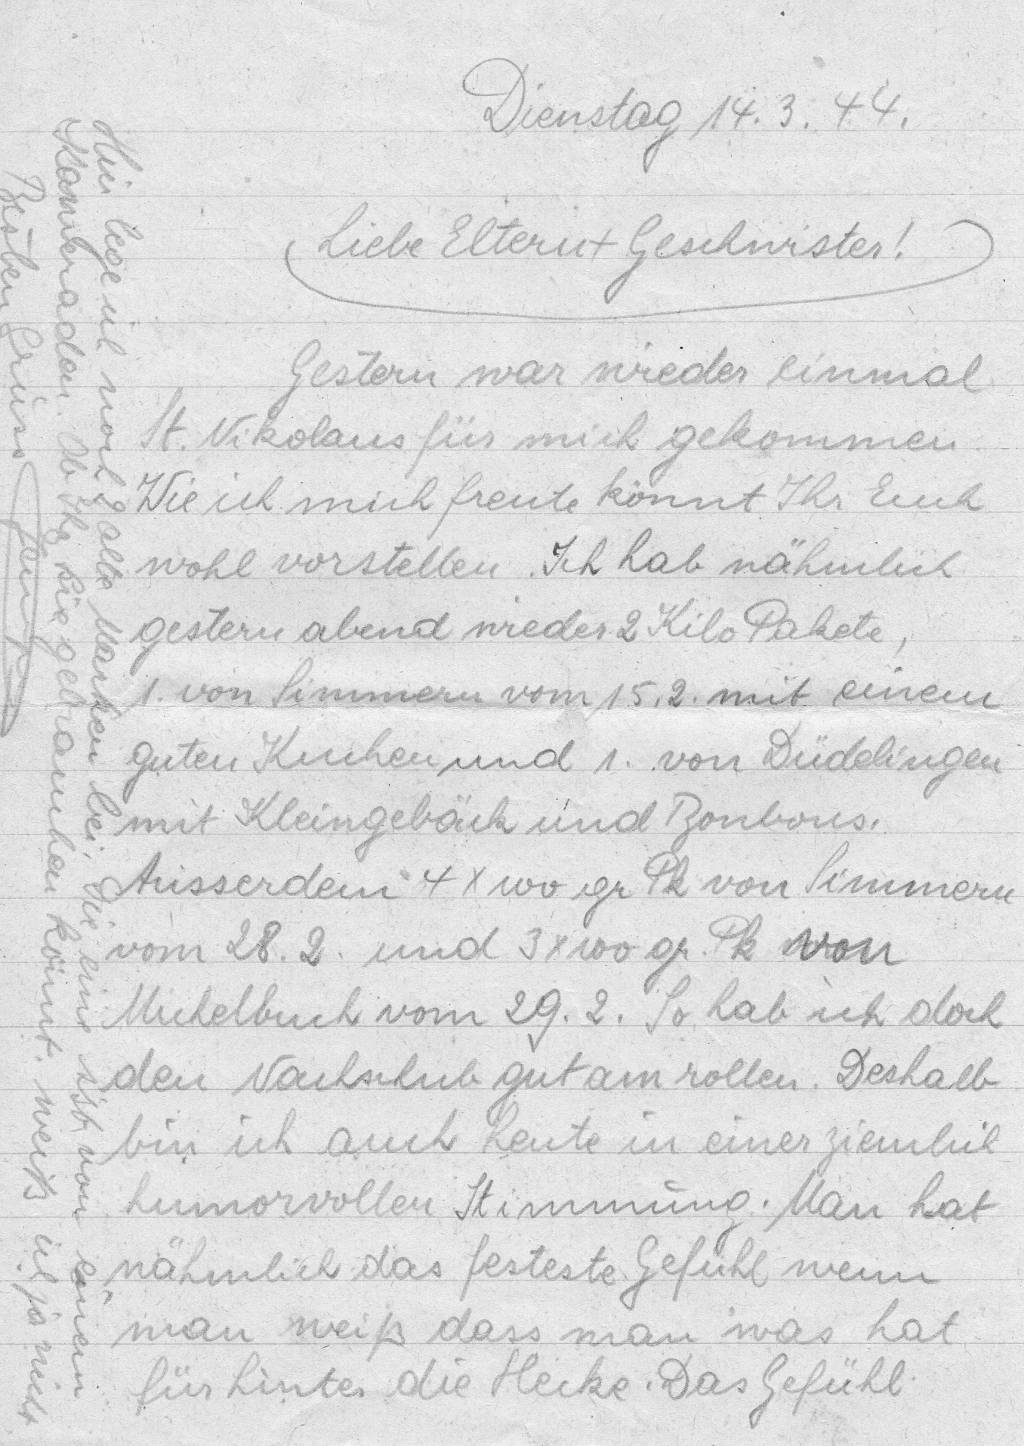 Dienstag 14.3.44.
Liebe Eltern + Geschwister!
Gestern war wieder einmal
St. Nikolaus für mich gekommen
Wie ich mich freute könnt Ihr Euch
wohl vorstellen. Ich hab nähmlich
gestern abend wieder 2 Kilo Pakete,
1. von Simmern vom 15.2. mit einem
guten Kuchen und 1. von Düddlingen
mit Kleingebäck und Bonbons.
Ausserdem 4 x 100 gr Pk von Simmern
vom 28.2. und 3 x 100 gr. Pk von
Michelbuch vom 29.2. So hab ich doch
den Nachschub gut am rollen. Deshalb
bin ich auch heute in einer ziemlich
humorvollen Stimmung. Man hat
nähmlich das festeste Gefühl wenn
man weiß dass man was hat
für hinter die Hecke. Das Gefühl
Hier lege ich noch 2 alte Marken bei, die eine ist von einem
Kameraden. Ob Ihr sie gebrauchen könnt. weiß ich ja nicht
Besten Gruss